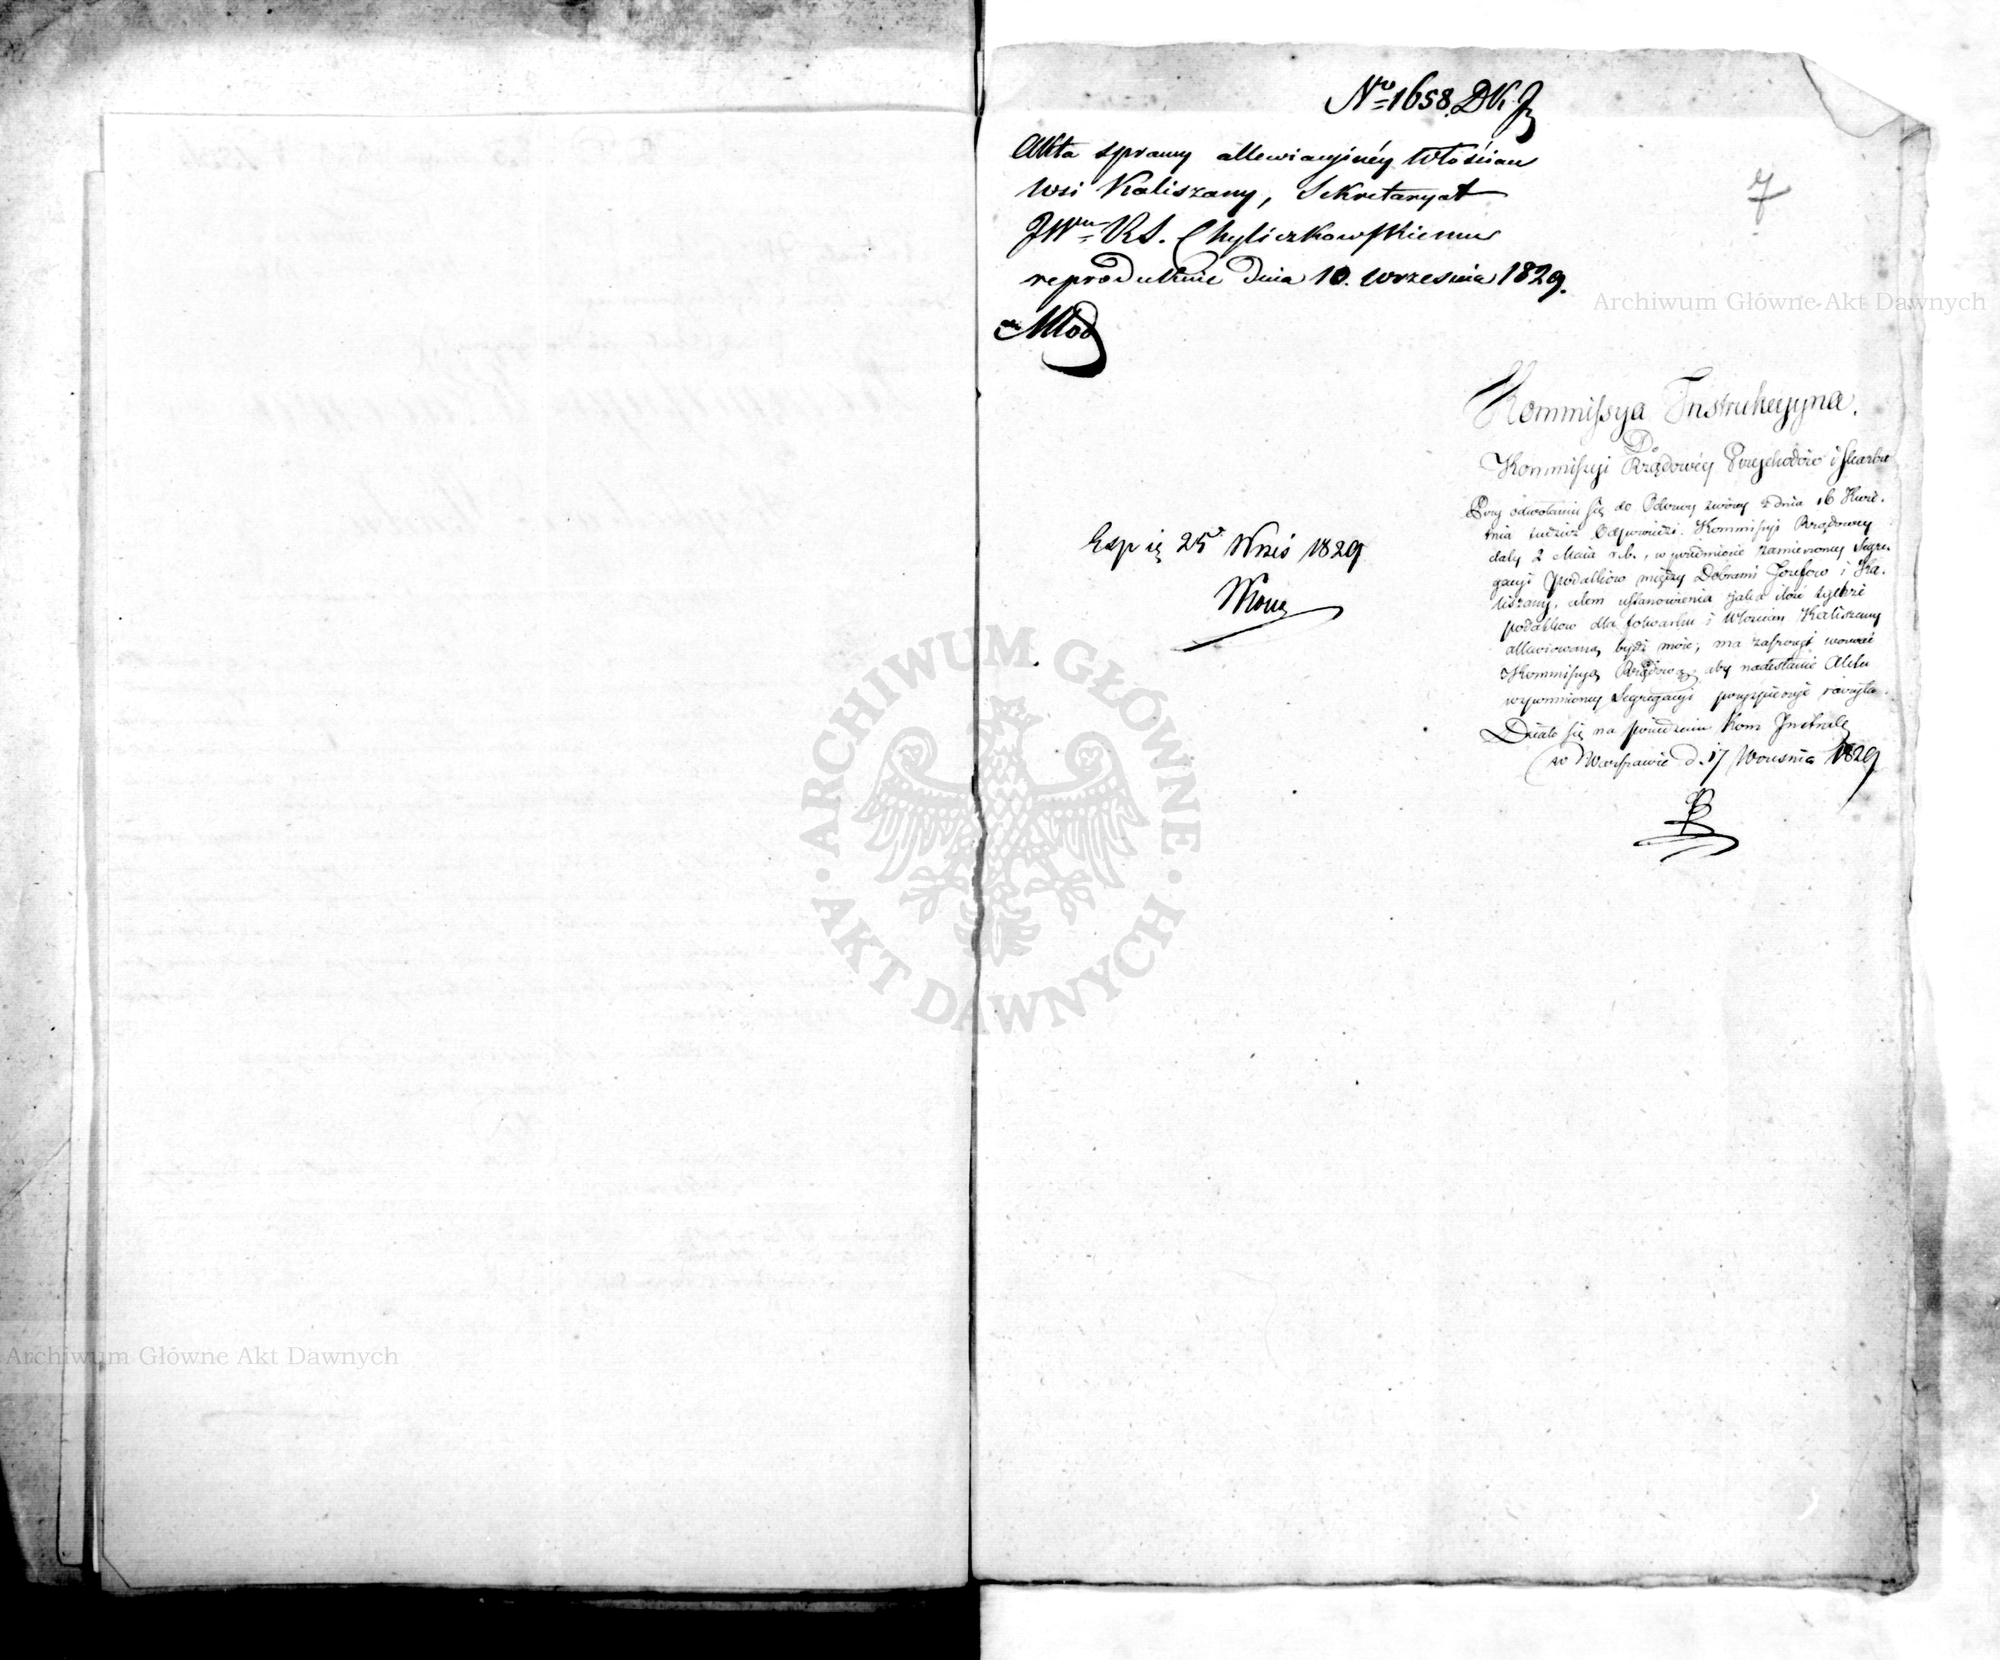 Nro 1658. DKJ
7
Akta sprawy allewiacyjnéy Włościan
Wsi Kaliszany, Sekretaryat
JWmu RS. Chyliczkowskiemu
reprodukuie dnia 10. Września 1829.
Archiwum Główne Akt Dawnych
Kommissya Instrukcyjna.
Do
Kommissyi Rządowéy Przychodów i Skarbu
Przy odwołaniu się do Odezwy swoiéy z dnia 16 Kwie-
tnia tudzież Odpowiedzi Kommissyi Rządowey
daty 2 Maia r.b., w przedmiocie zamierzoney Segre-
gacyi podatków między Dobrami Józefów i Ka-
liszany, celem ustanowienia jaka ilość tychże
podatków dla folwarku i Włościan Kaliszany
allewiowaną bydź może, ma zaszczyt wezwać
Kommissyą Rządową, aby nadesłanie Aktu
wspomnioney Segregacyi przyspieszyć raczyła.
Działo się na posiedzeniu Kom Instrukc
w Warszawie d. 17 Września 1829
25 Wrześ 1829
ARCHIWUM GŁÓWNE
AKT DAWNYCH
Archiwum Główne Akt Dawnych